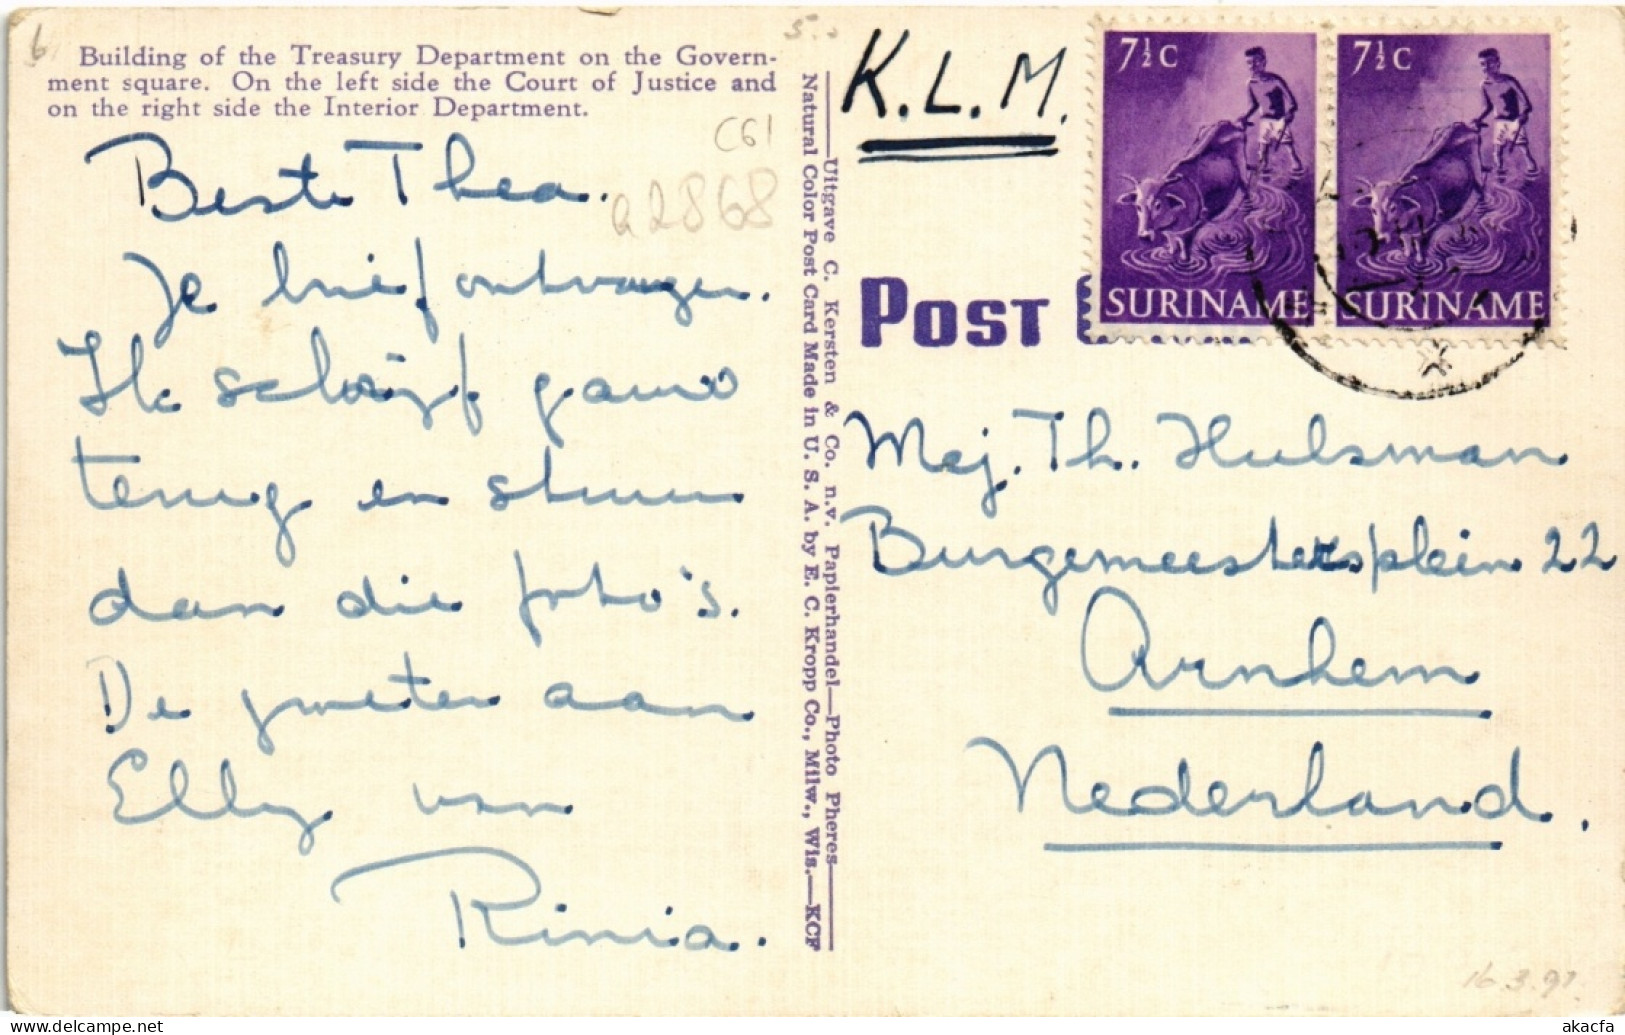 Building of the Treasury Department on the Govern-
ment square. On the left side the Court of Justice and
on the right side the Interior Department.
Beste Thea.
Je brief ontvangen.
Ik schrijf gauw
terug en stuur
dan die foto's.
De groeten aan
Elly van
Rinia.
C61
a2868
Uitgave C. Kersten & Co. n.v. Papierhandel—Photo Pheres
Natural Color Post Card Made in U. S. A. by E. C. Kropp Co., Milw., Wis.—KCF
K.L.M.
7½ C
SURINAME
7½ C
SURINAME
POST
Mej. Th. Hulsman
Burgemeestersplein 22
Arnhem
Nederland.
16.3.97.
delcampe.net
akacfa